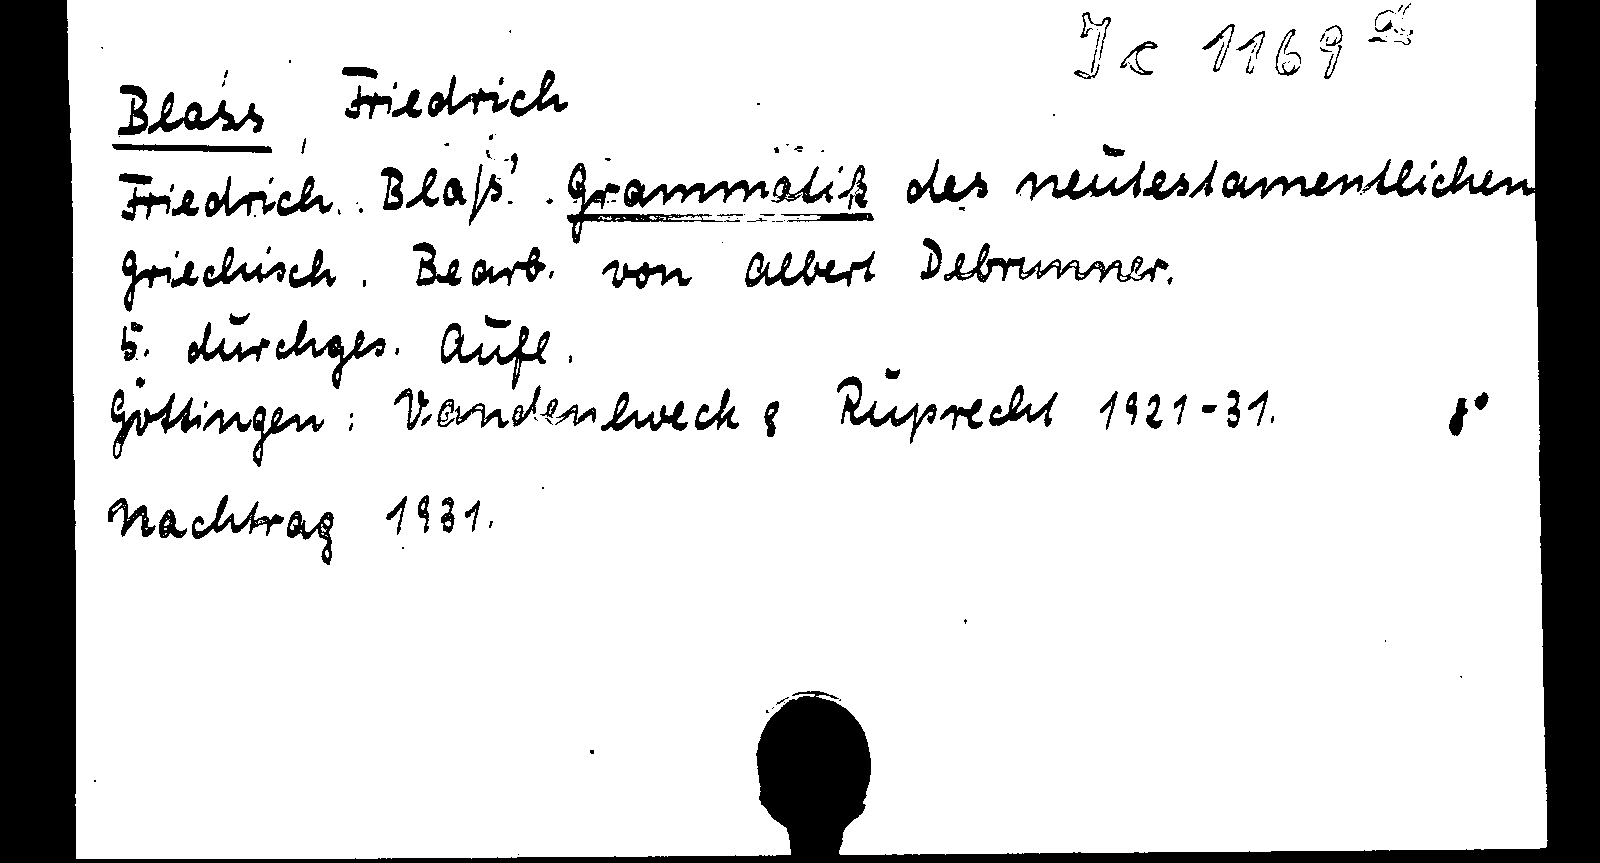 Jc 1169
Blass, Friedrich
Friedrich Blaß' Grammatik des neutestamentlichen
Griechisch. Bearb. von Albert Debrunner.
5. durchges. Aufl.
Göttingen: Vandenhoeck & Ruprecht 1921-31. 8°
Nachtrag 1931.